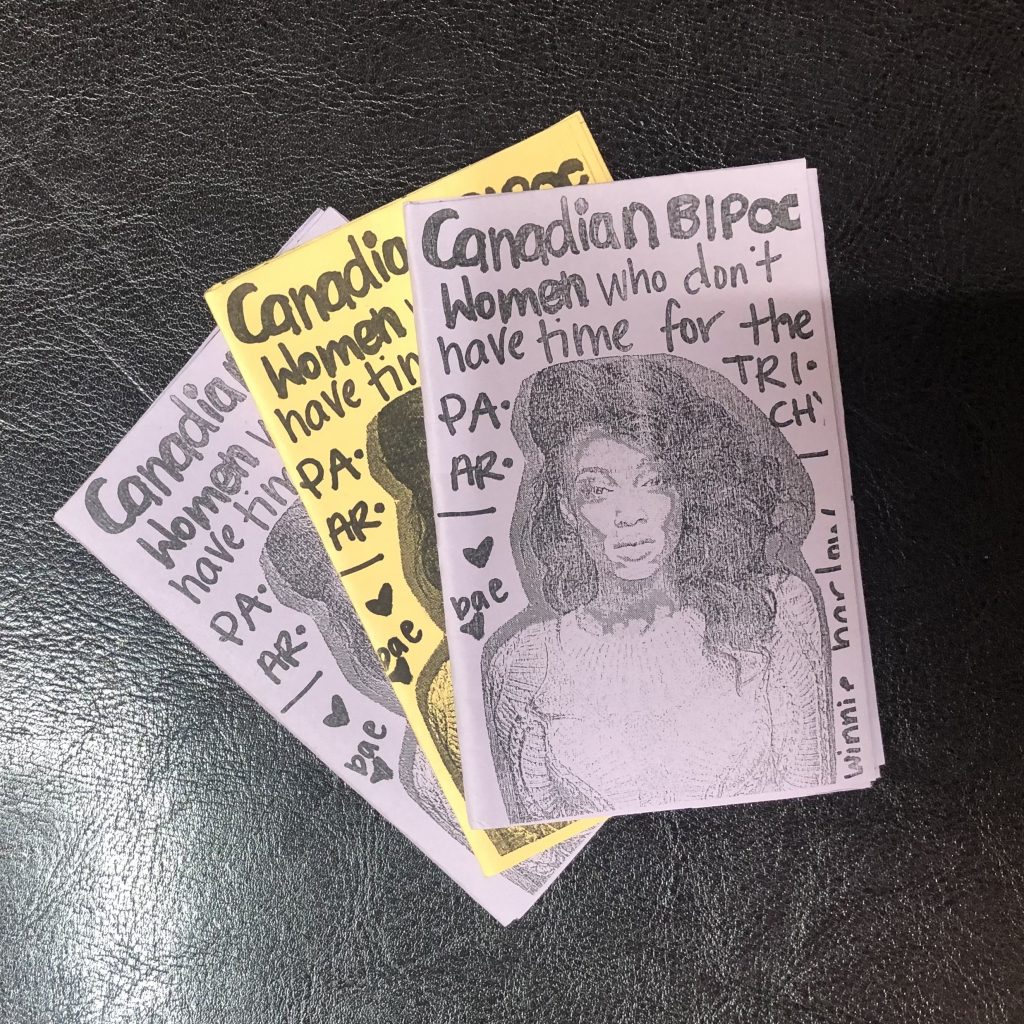 Canadian BIPOC
Women who don't
have time for the
PA· TRI·
AR· CH'
|
|
bae
winnie harlow
Canadia
BIPOC
Women w
have tim
PA·
AR·
|
bae
Canadian
Women w
have tim
PA·
AR·
|
bae